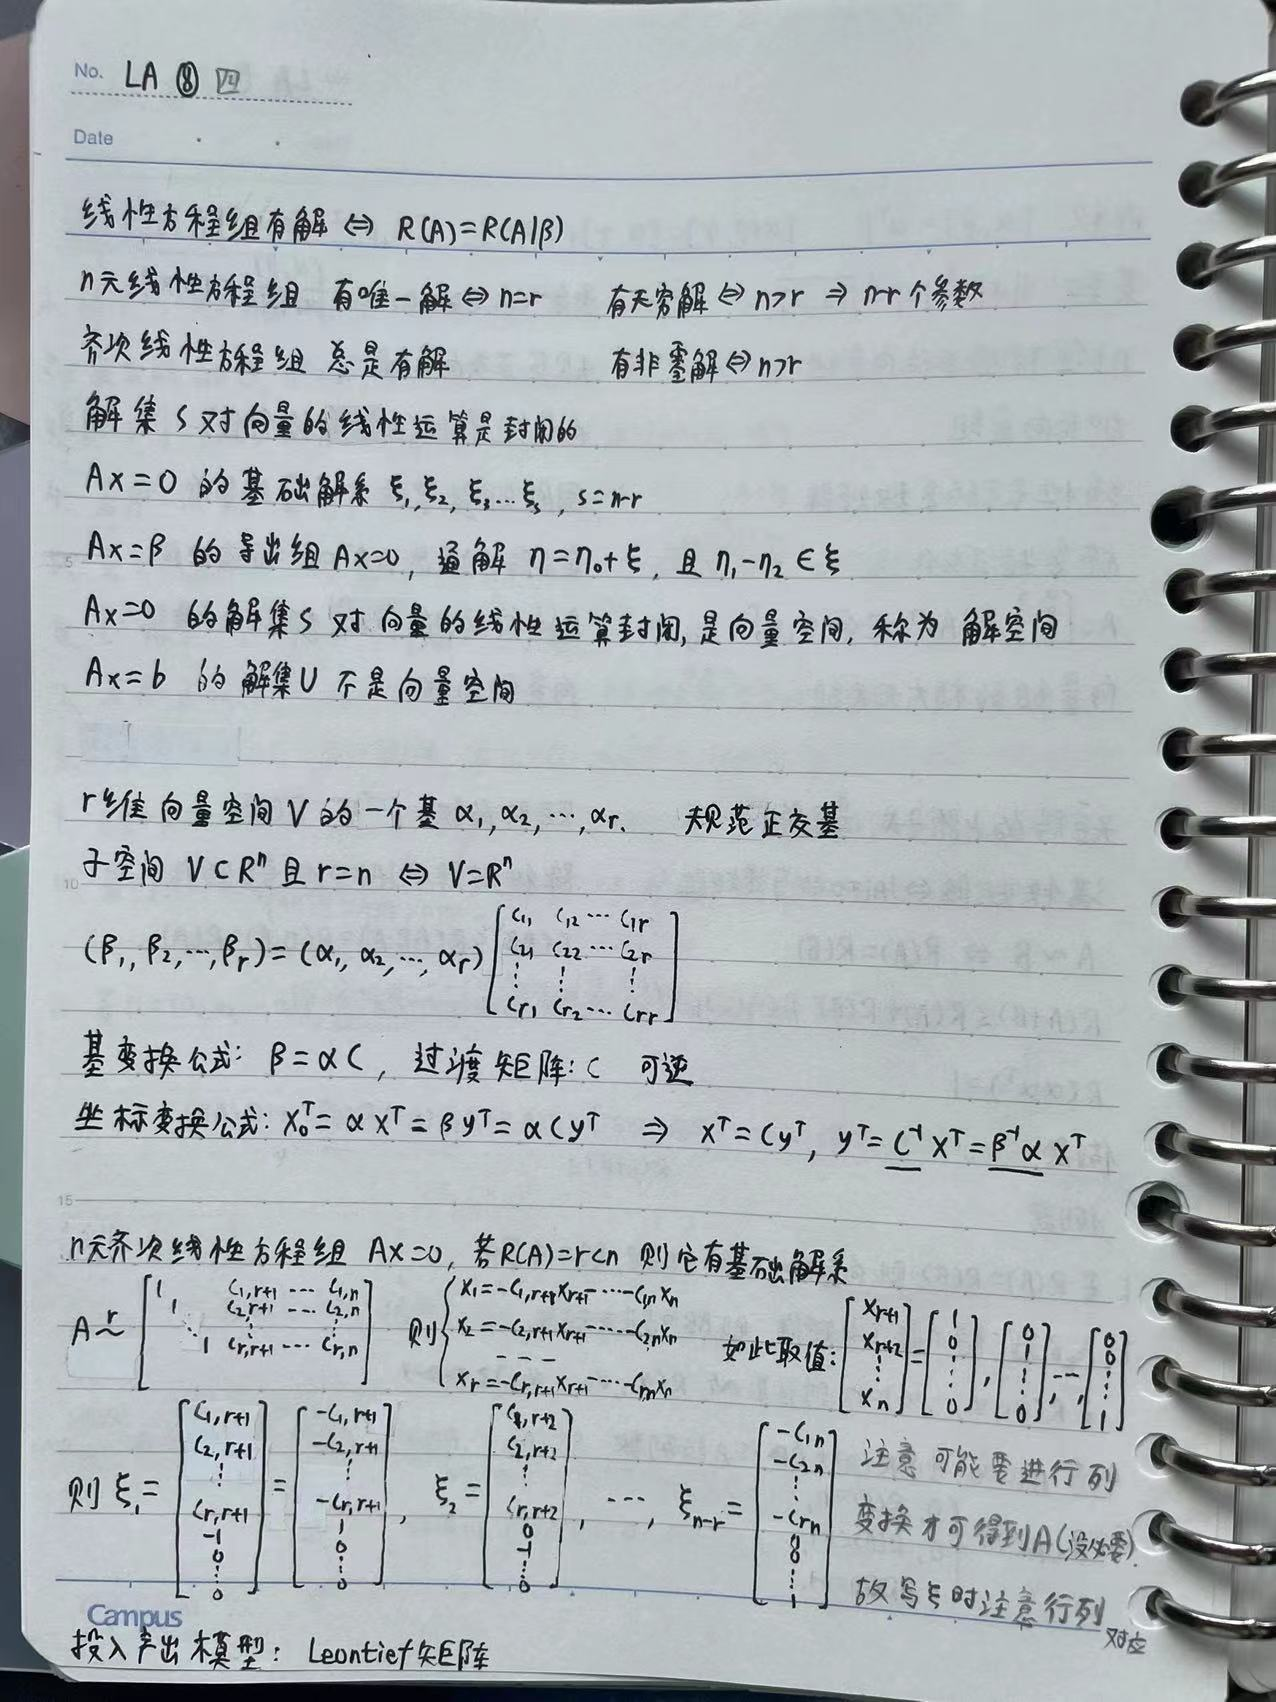 No. LA ⑧ 四
Date
线性方程组有解 ⇔ R(A)=R(A|β)
n元线性方程组 有唯一解⇔n=r 有无穷解⇔n>r ⇒ n-r个参数
齐次线性方程组 总是有解 有非零解⇔n>r
解集S对向量的线性运算是封闭的
Ax=0 的基础解系 ξ₁,ξ₂,ξ₃…ξₛ, s=n-r
5 Ax=β 的导出组Ax=0, 通解 η=η₀+ξ, 且 η₁-η₂∈ξ
Ax=0 的解集S对向量的线性运算封闭,是向量空间,称为解空间
Ax=b 的解集U不是向量空间
r维向量空间V的一个基 α₁,α₂,…,αr. 规范正交基
10 子空间 V⊂Rⁿ且r=n ⇔ V=Rⁿ
(β₁,β₂,…,βr)=(α₁,α₂,…,αr) [C₁₁ C₁₂ … C₁r
C₂₁ C₂₂ … C₂r
⋮ ⋮ ⋮
Cr₁ Cr₂ … Crr]
基变换公式: β=αC, 过渡矩阵:C 可逆
坐标变换公式: x₀ᵀ=αxᵀ=βyᵀ=αCyᵀ ⇒ xᵀ=Cyᵀ, yᵀ=C⁻¹xᵀ=β⁻¹αxᵀ
15
n元齐次线性方程组 Ax=0, 若R(A)=r<n 则它有基础解系
A r~ [1 C₁,r+1 … C₁,n
1 C₂,r+1 … C₂,n
⋱ ⋮ ⋮
1 Cr,r+1 … Cr,n]
则{x₁=-C₁,r+1xr+1-…-C₁nxn
x₂=-C₂,r+1xr+1-…-C₂nxn
---
xr=-Cr,r+1xr+1-…-Crnxn
如此取值: [xr+1 xr+2 ⋮ xn]=[1 0 ⋮ 0], [0 1 ⋮ 0], …, [0 0 ⋮ 1]
则 ξ₁=[C₁,r+1 C₂,r+1 ⋮ Cr,r+1 -1 0 ⋮ 0]=[-C₁,r+1 -C₂,r+1 ⋮ -Cr,r+1 1 0 ⋮ 0], ξ₂=[C₁,r+2 C₂,r+2 ⋮ Cr,r+2 0 -1 ⋮ 0], …, ξn-r=[-C₁n -C₂n ⋮ -Crn 0 ⋮ 1]
注意可能要进行列
变换才可得到A(没必要).
故写ξ时注意行列
对应
Campus
投入产出模型: Leontief矩阵